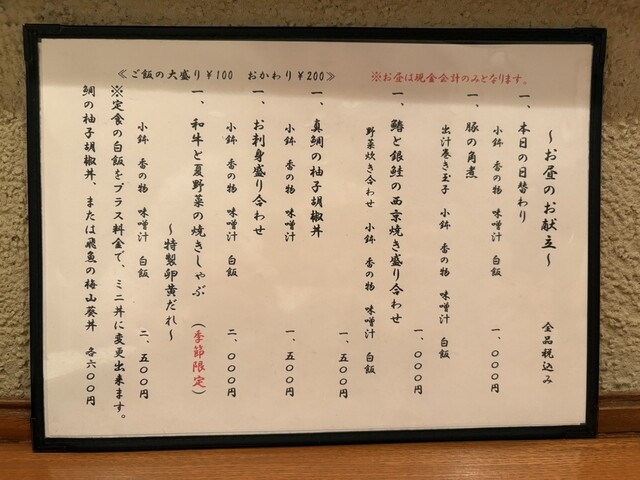 ※お昼は現金会計のみとなります。
≪ご飯の大盛り￥100　おかわり￥200≫
～お昼のお献立～　全品税込み
一、本日の日替わり
小鉢　香の物　味噌汁　白飯　一、〇〇〇円
一、豚の角煮
出汁巻き玉子　小鉢　香の物　味噌汁　白飯　一、〇〇〇円
一、鰆と銀鮭の西京焼き盛り合わせ
野菜炊き合わせ　小鉢　香の物　味噌汁　白飯　一、五〇〇円
一、真鯛の柚子胡椒丼
小鉢　香の物　味噌汁　一、五〇〇円
一、お刺身盛り合わせ
小鉢　香の物　味噌汁　白飯　二、〇〇〇円
一、和牛と夏野菜の焼きしゃぶ（季節限定）
～特製卵黄だれ～
小鉢　香の物　味噌汁　白飯　二、五〇〇円
※定食の白飯をプラス料金で、ミニ丼に変更出来ます。
鯛の柚子胡椒丼、または飛魚の梅山葵丼　各六〇〇円